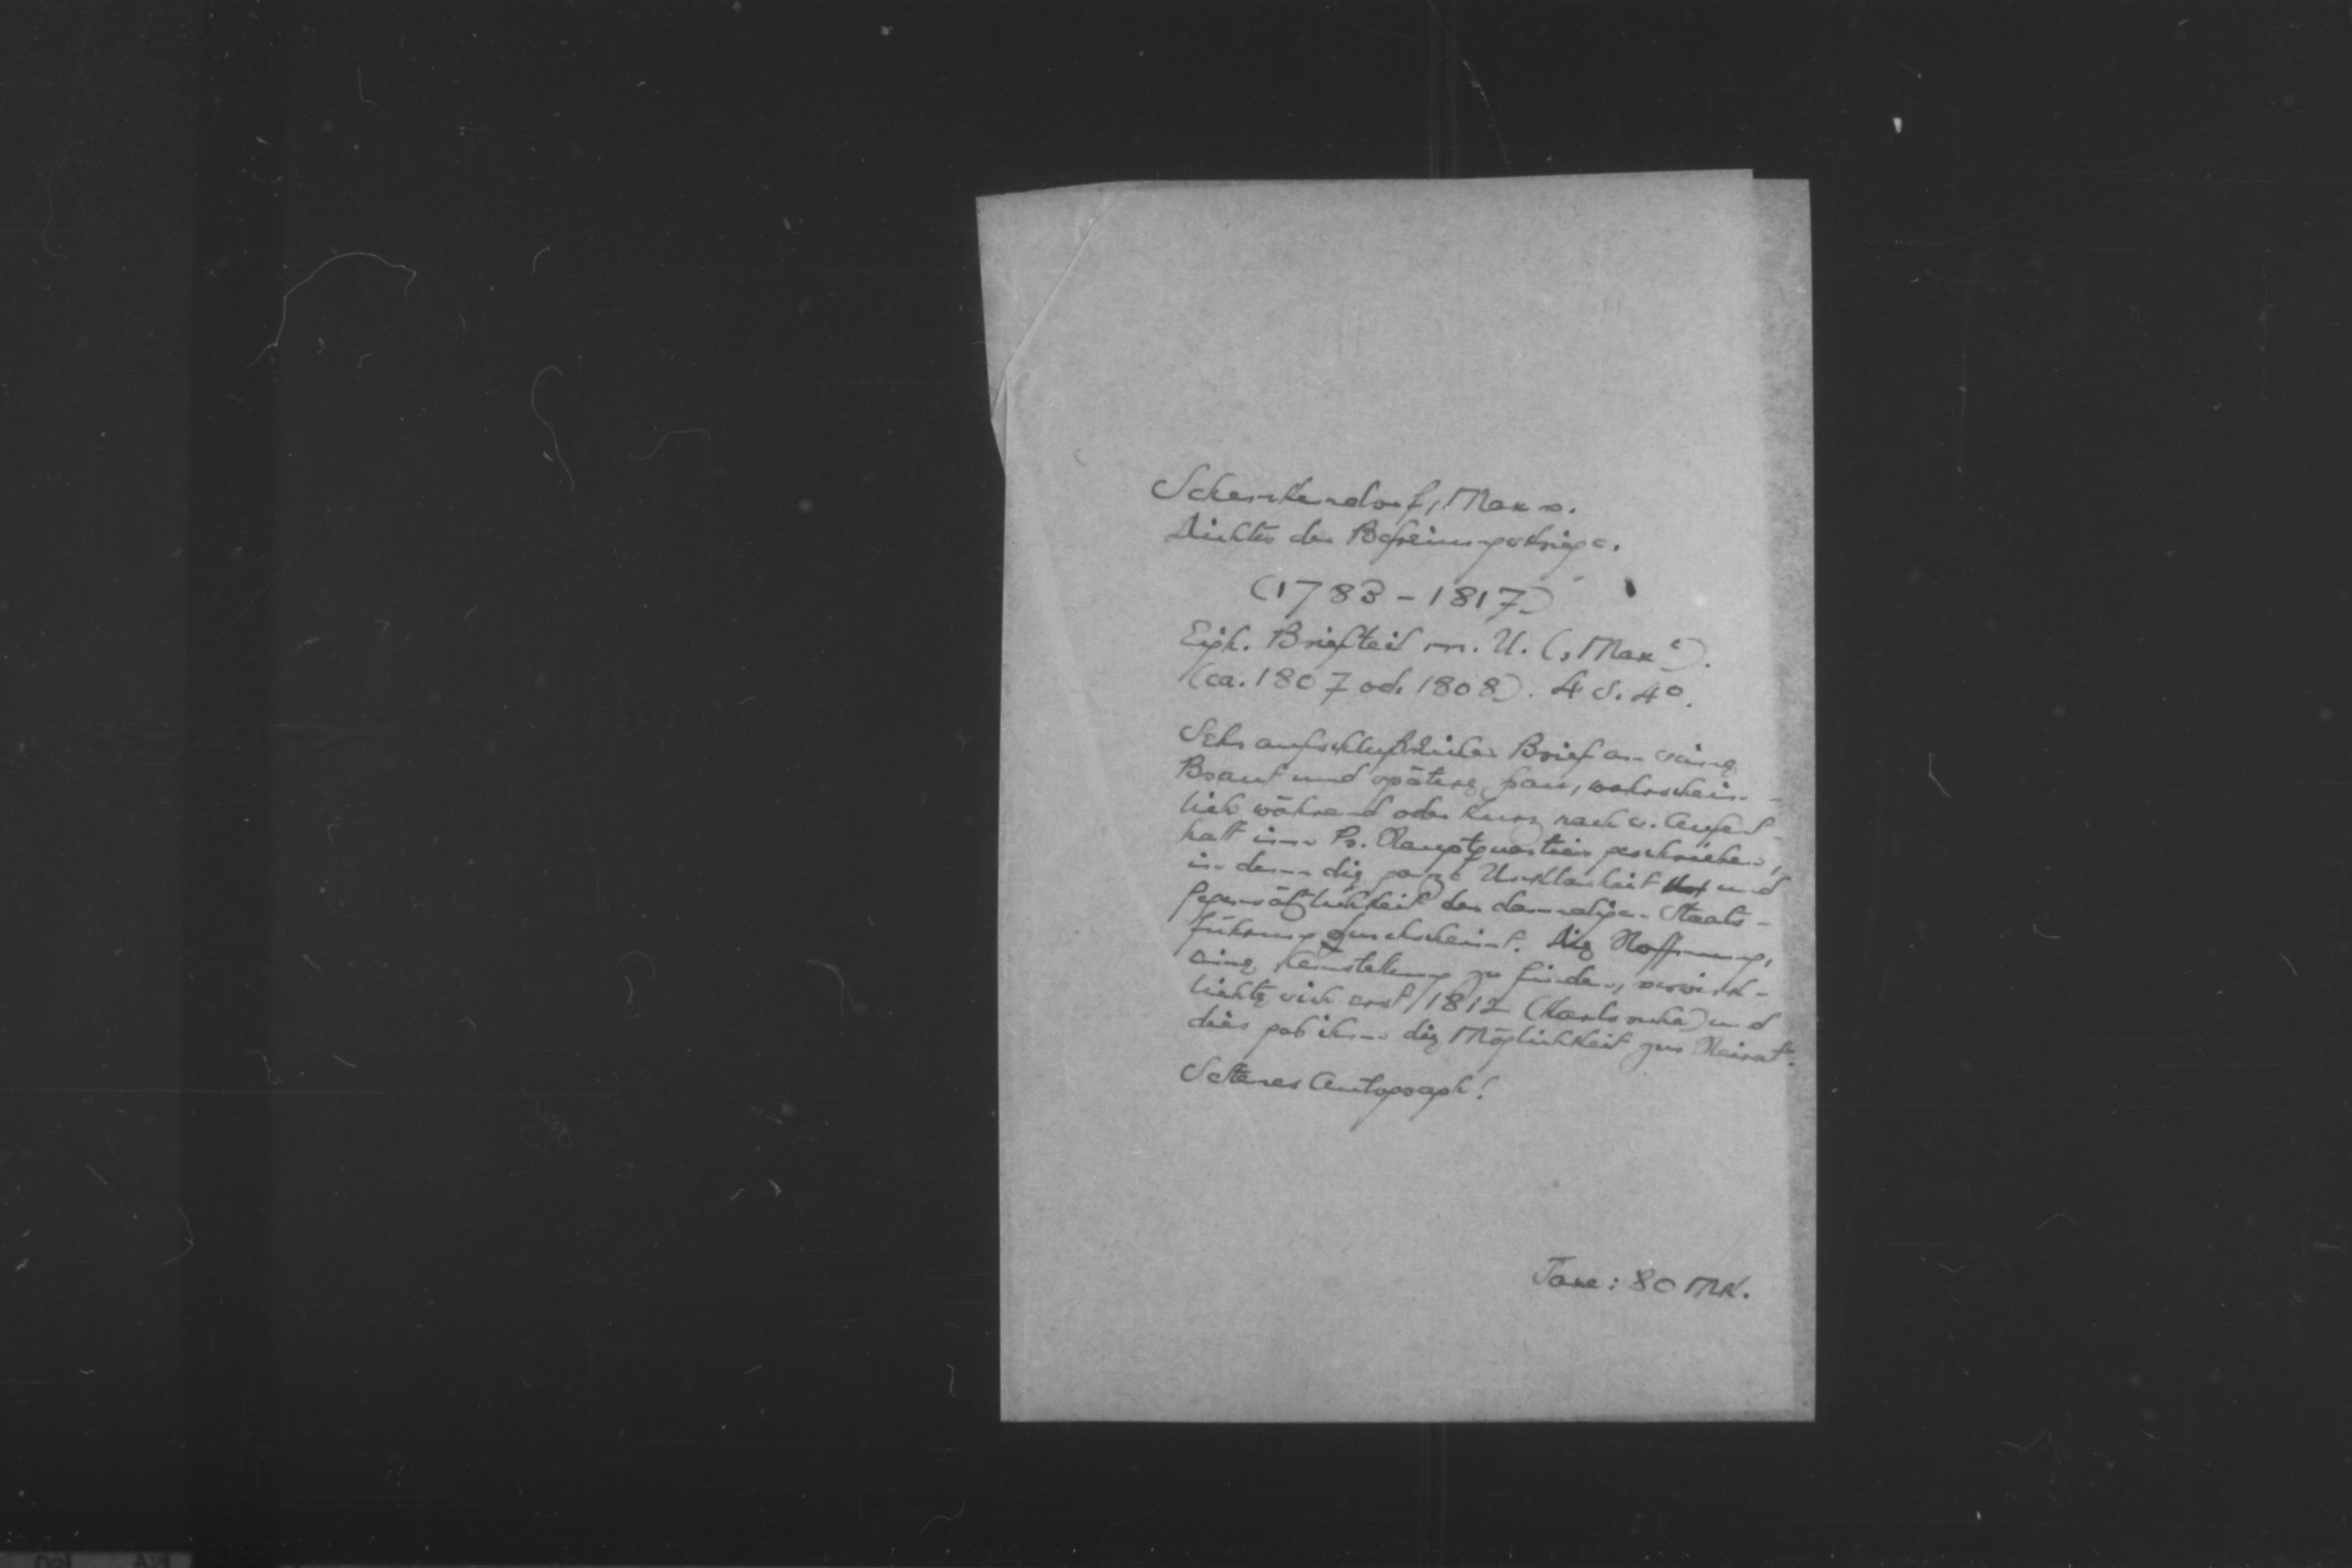 Schenkendorf, Max v.
Dichter der Befreiungskriege.
(1783 - 1817)
Eigh. Briefteil m. U. („Max“).
(ca. 1807 od. 1808). 4 S. 4°.
Sehr aufschlußreicher Brief an seine
Braut und spätere Frau, wahrschein-
lich während oder kurz nach s. Aufent-
halt im Pr. Hauptquartier geschrieben,
in dem die ganze Unklarheit und
Gegensätzlichkeit der damaligen Staats-
führung durchscheint. Die Hoffnung,
eine Anstellung zu finden, verwirk-
lichte sich erst 1812 (Karlsruhe) und
dies gab ihm die Möglichkeit zur Heirat.
Seltenes Autograph!
Taxe: 80 MK.